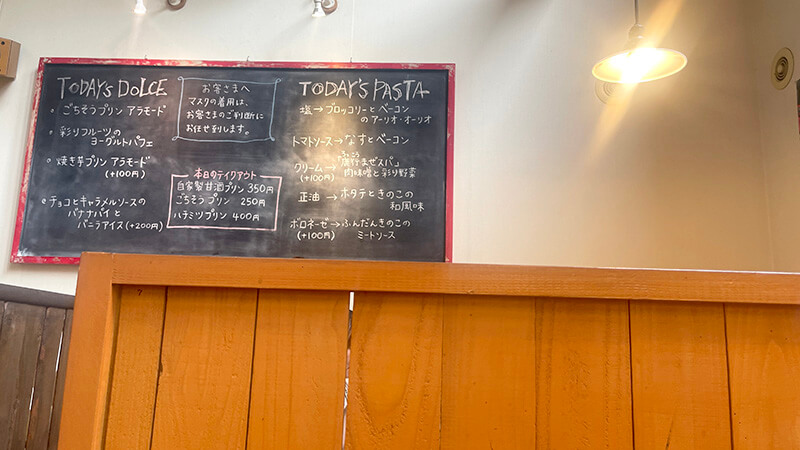 TODAY's DOLCE
• ごちそうプリン アラモード
• 彩りフルーツの
ヨーグルトパフェ
• 焼き芋プリン アラモード
(+100円)
• チョコとキャラメルソースの
バナナパイと
バニラアイス(+200円)
お客さまへ
マスクの着用は、
お客さまのご判断に
お任せ致します。
本日のテイクアウト
自家製甘酒プリン 350円
ごちそうプリン 250円
ハチミツプリン 400円
TODAY'S PASTA
塩→ブロッコリーとベーコン
のアーリオ・オーリオ
トマトソース→なすとベーコン
クリーム→
(+100円) 肉味噌と彩り野菜
正油→ホタテときのこの
和風味
ボロネーゼ→ふんだんきのこの
(+100円) ミートソース